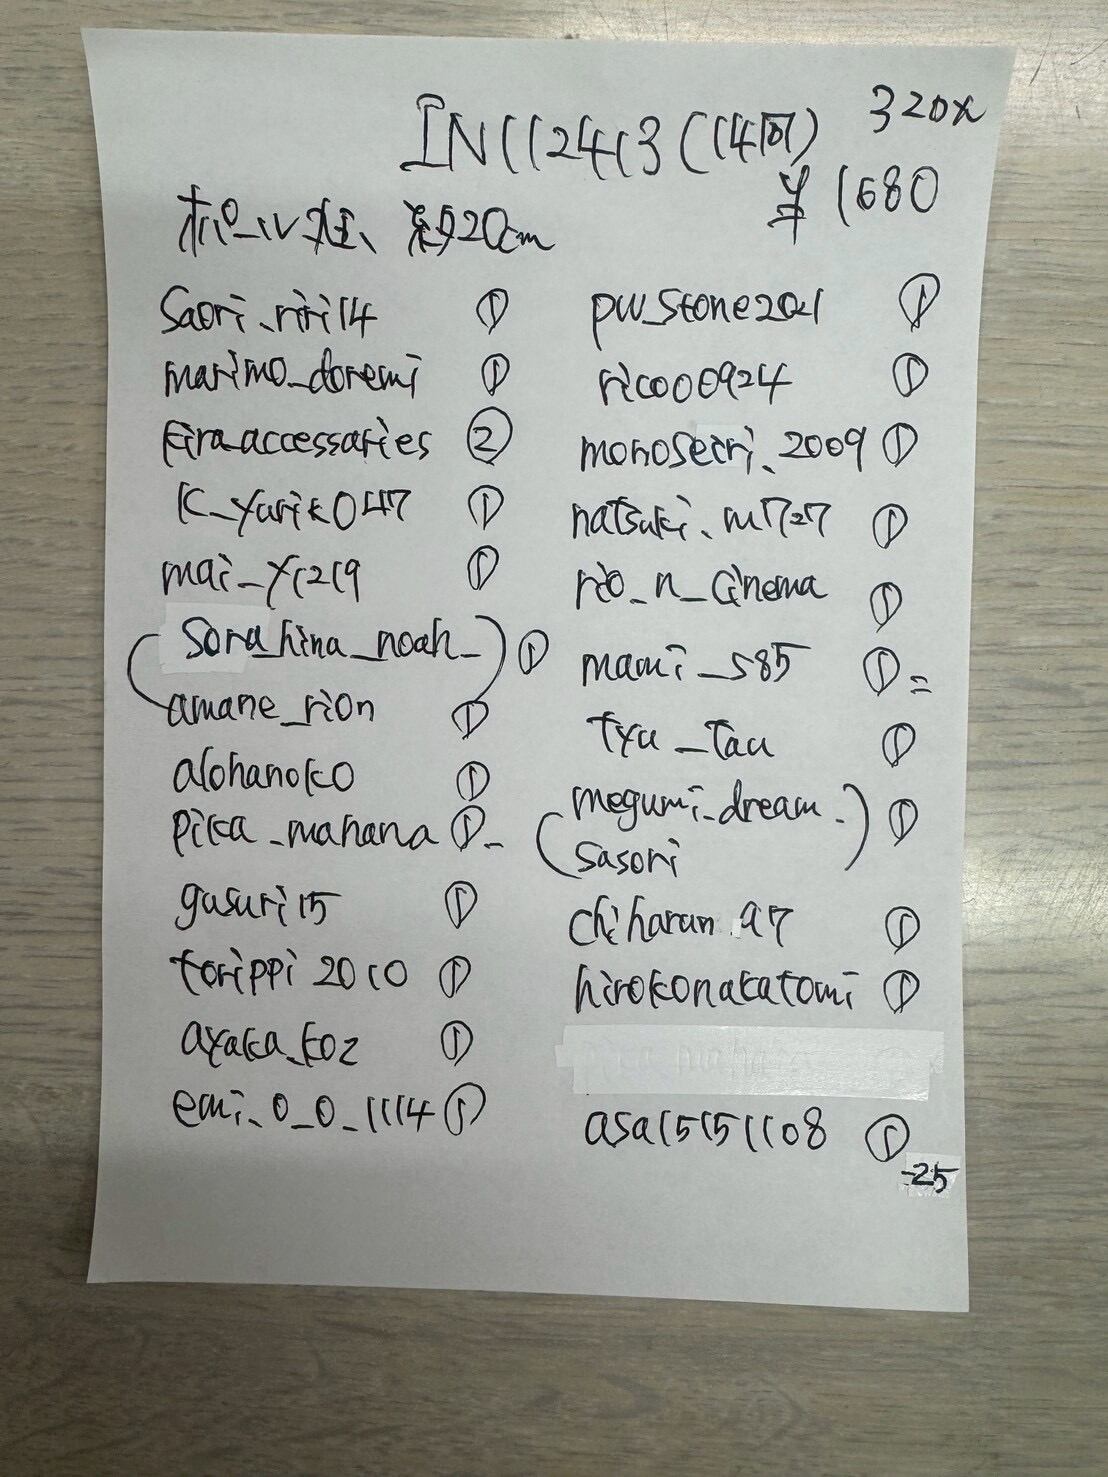 IN112413(114回) 320x
¥1680
ポール社、約20cm
saori.riri14 ①
marimo_doremi ①
kira_accessaries ②
k_yuriko47 ①
mai_y1219 ①
(sora_hina_noah_) ①
amane_rion ①
alohanoko ①
pika_manana ①-
gusuri15 ①
torippi2010 ①
ayaka_koz ①
emi.0_0_1114 ①
pw_stone2021 ①
rico00924 ①
monoseiri.2009 ①
natsuki.m1727 ①
rio_n_cinema ①
mami_s85 ①=
tyu_tau ①
(megumi.dream_
sasori) ①
chiharun.97 ①
hirokonakatomi ①
asa15151108 ①
-25